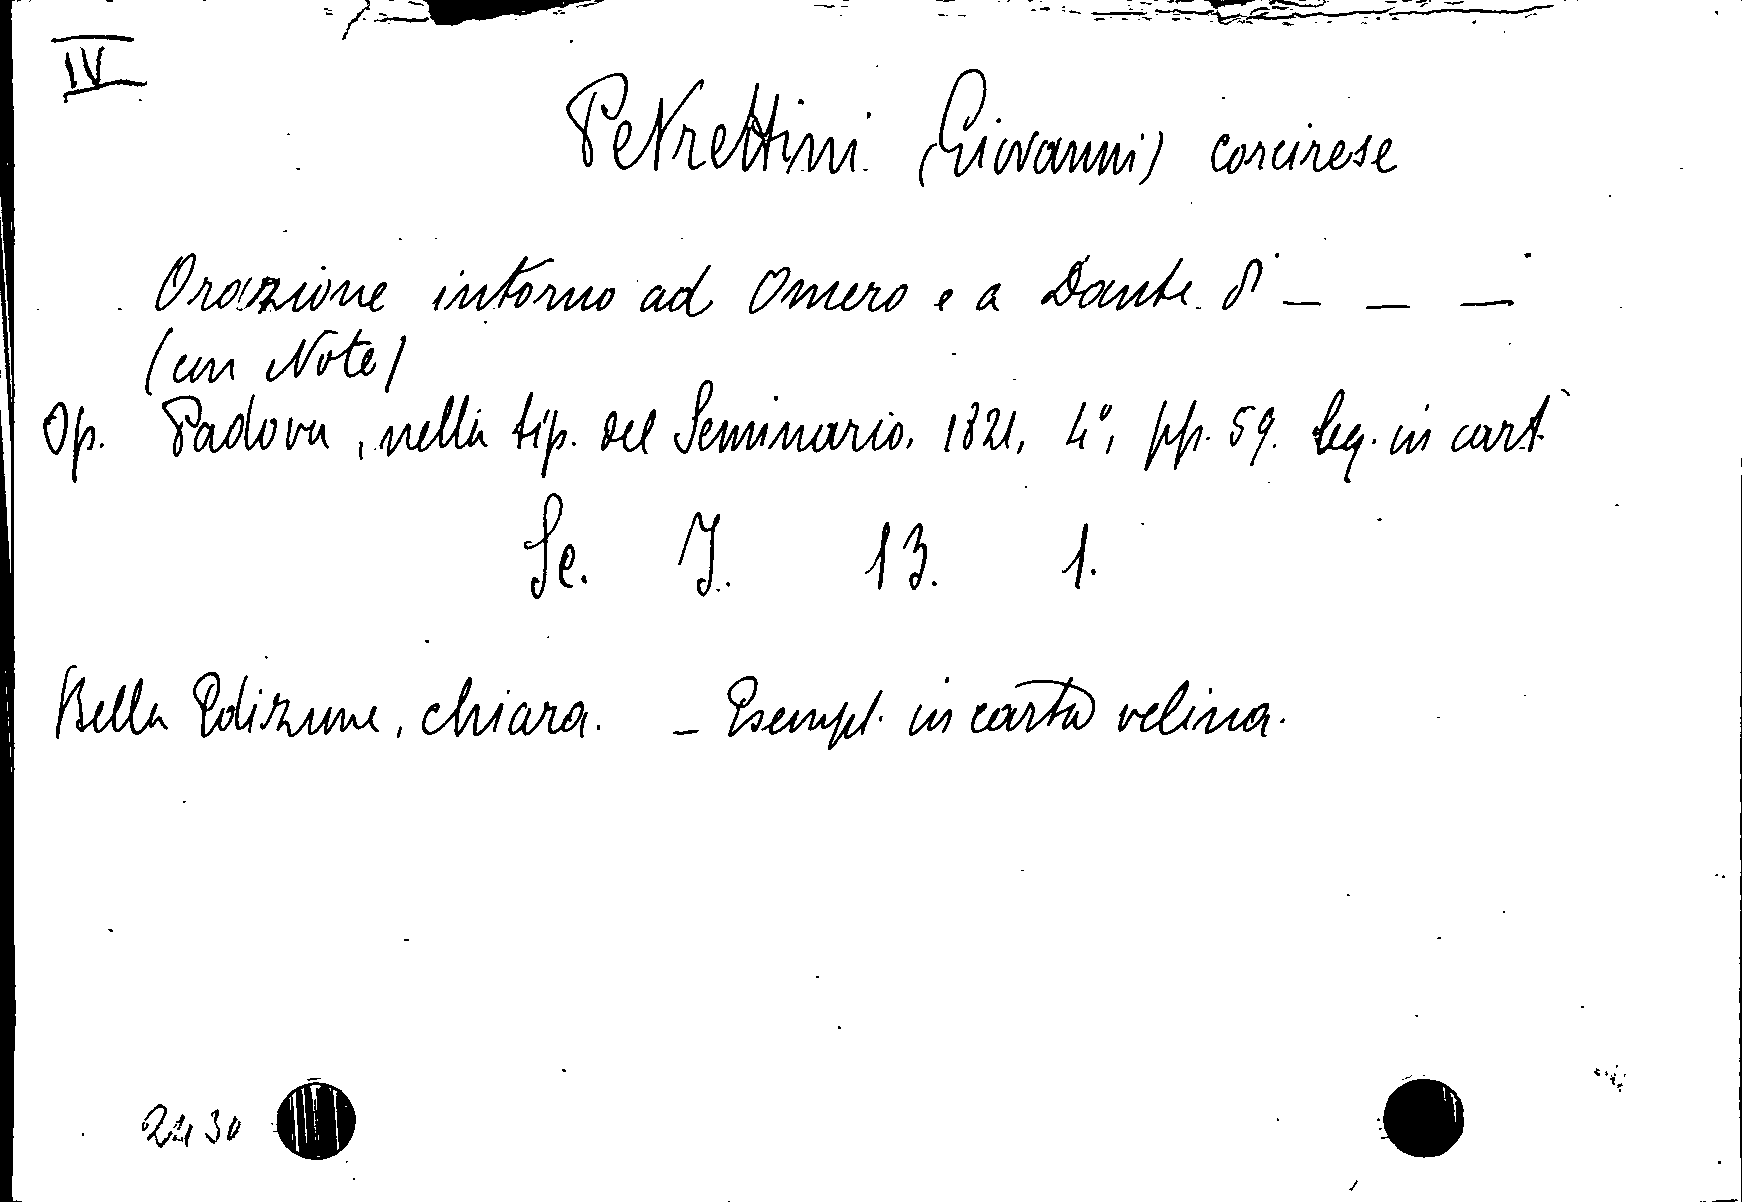 IV
Petrettini (Giovanni) corcirese
Orazione intorno ad Omero e a Dante di _ _ _
(con Note)
Op. Padova, nella tip. del Seminario, 1821, 4°, pp. 59. leg. in cart.
Se. I. 13. 1.
Bella Edizione, chiara. _ Esempl. in carta velina.
2430